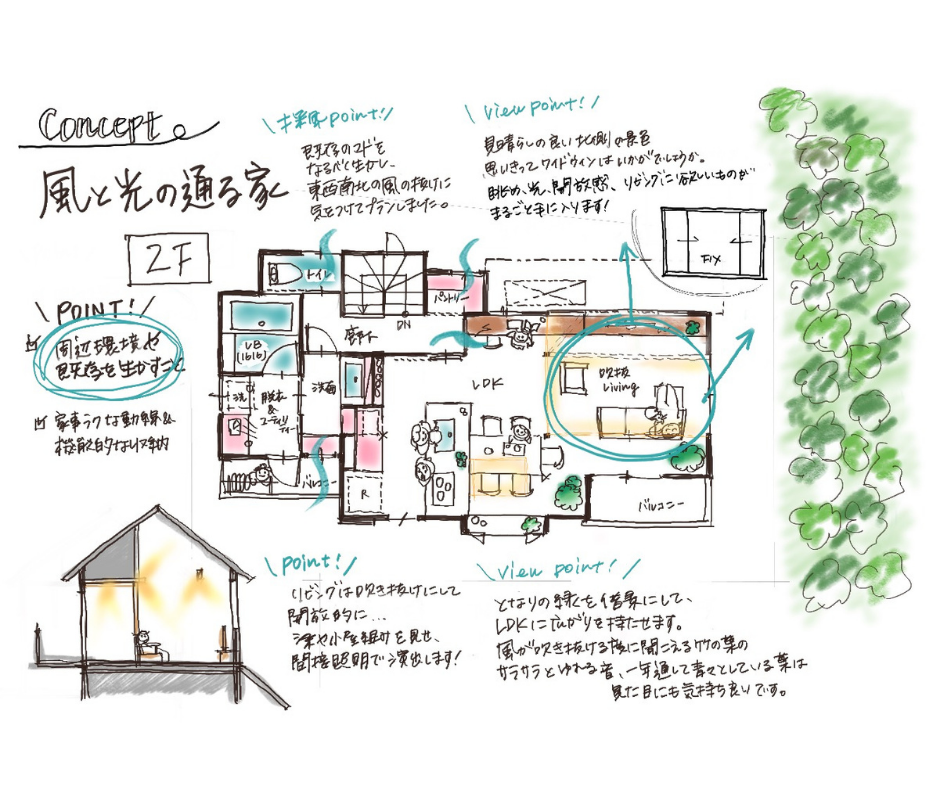 Concept
風と光の通る家
2F
\ POINT! /
周辺環境や
既存を生かすこと
家事ラクな動線&
機能的な収納
\ 採風point! /
既存のマドを
なるべく生かし、
東西南北の風の抜けに
気をつけてプランしました。
\ view point! /
見晴らしの良い北側の景色
思いきってワイドウィンはいかがでしょうか。
眺め、光、開放感、リビングに欲しいものが
まるごと手に入ります!
FIX
トイレ
パントリー
DN
廊下
UB
(1616)
洗面
洗
脱衣
&
ユーティリ
ティー
バルコニー
R
LDK
吹抜
Living
バルコニー
\ point! /
リビングは吹き抜けにして
開放的に...
梁や小屋組みを見せ、
間接照明で演出します!
\ view point! /
となりの緑を借景にして、
LDKに広がりを持たせます。
風が吹き抜ける度に聞こえる竹の葉の
サラサラとゆれる音、一年通して青々としている葉は
見た目にも気持ち良いです。